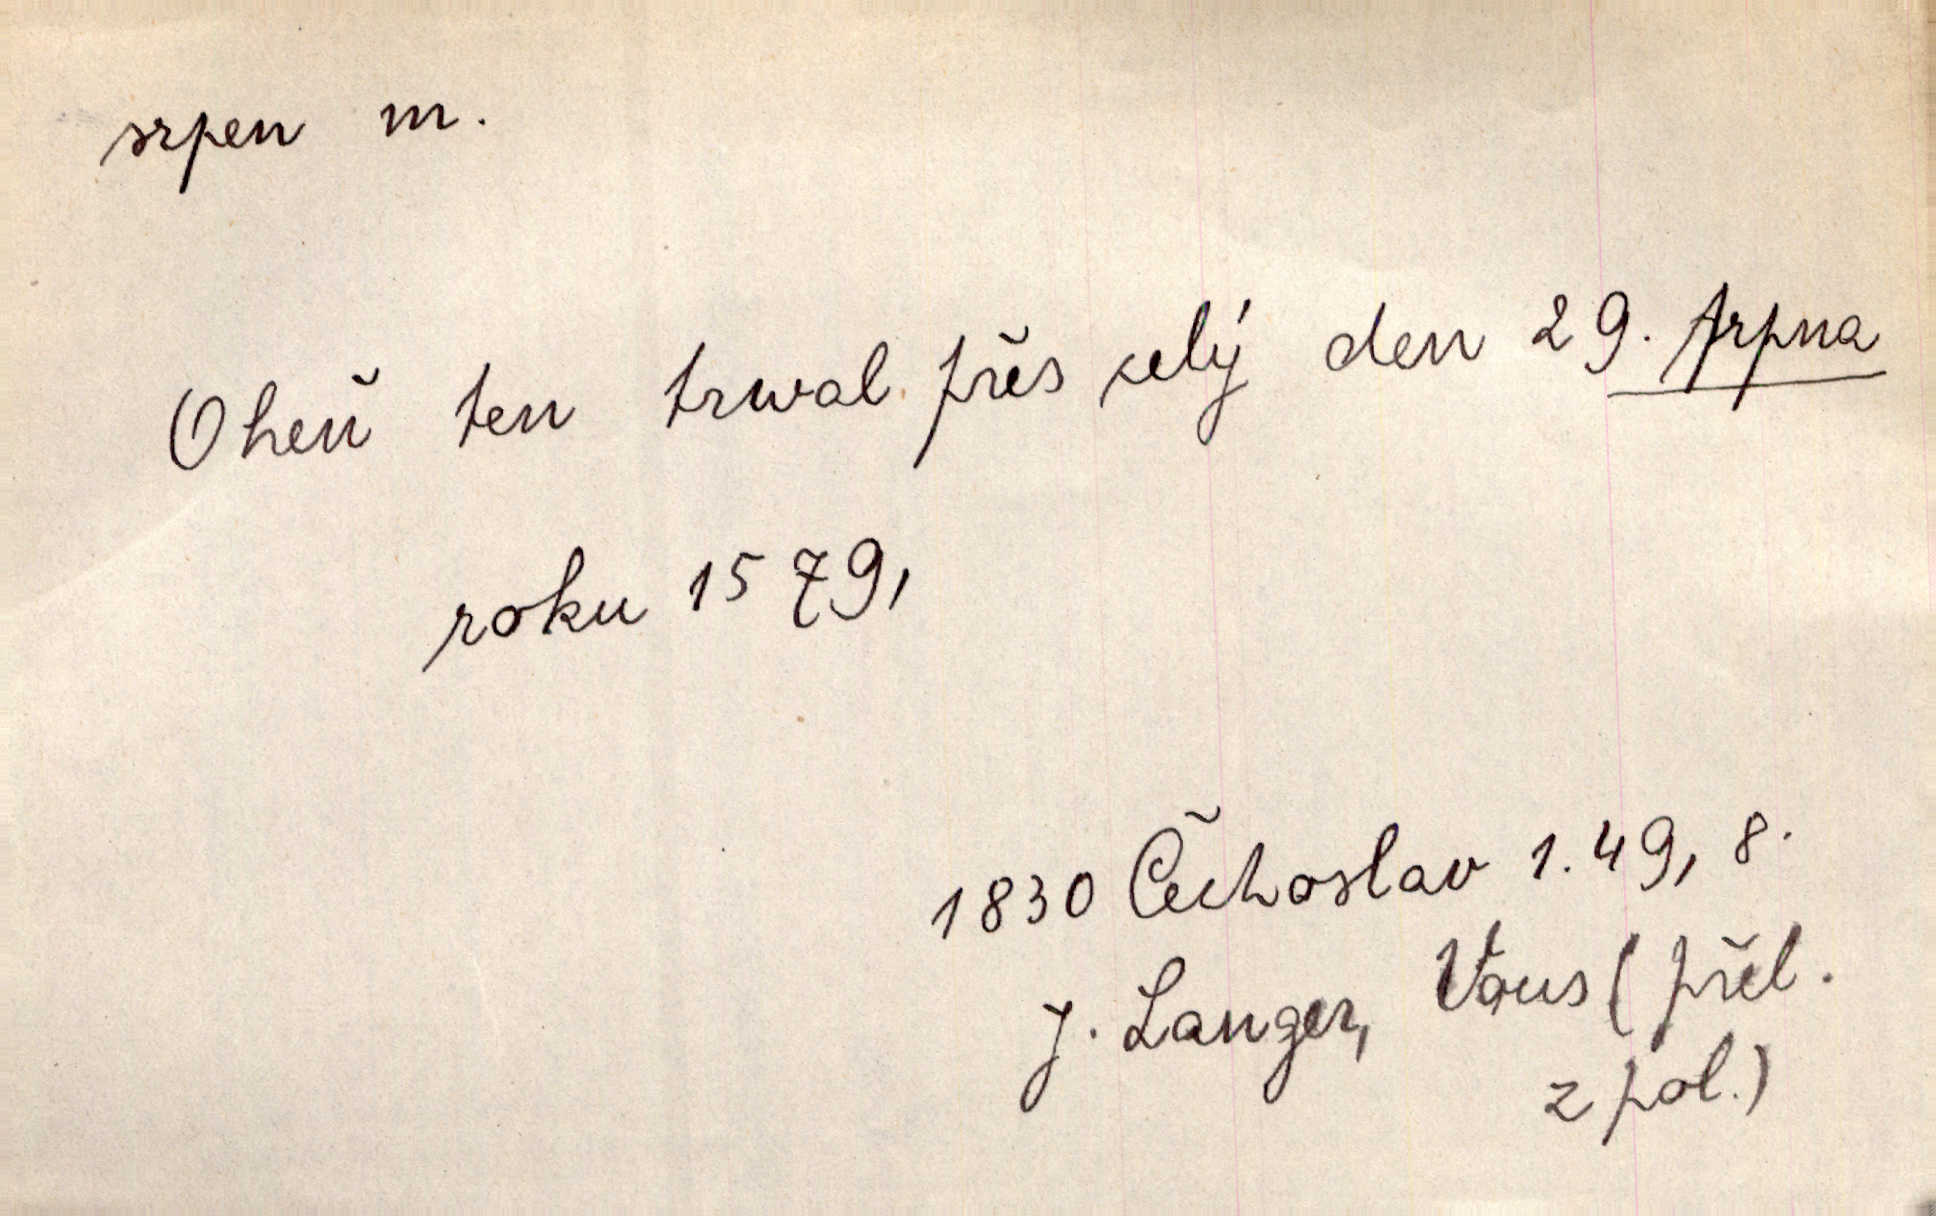 srpen m.
Oheň ten trwal přes celý den 29. srpna
roku 1579,
1830 Čechoslav 1.49, 8.
J. Langer, Vous (přel.
z pol.)